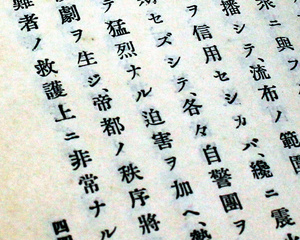 ニ與フ
播シテ、流布ノ範圍
ヲ信用セシカバ、纔ニ震
セズシテ、各々自警團ヲ
テ猛烈ナル迫害ヲ加ヘ、勢
劇ヲ生ジ、帝都ノ秩序將
難者ノ救護上ニ非常ナル
四